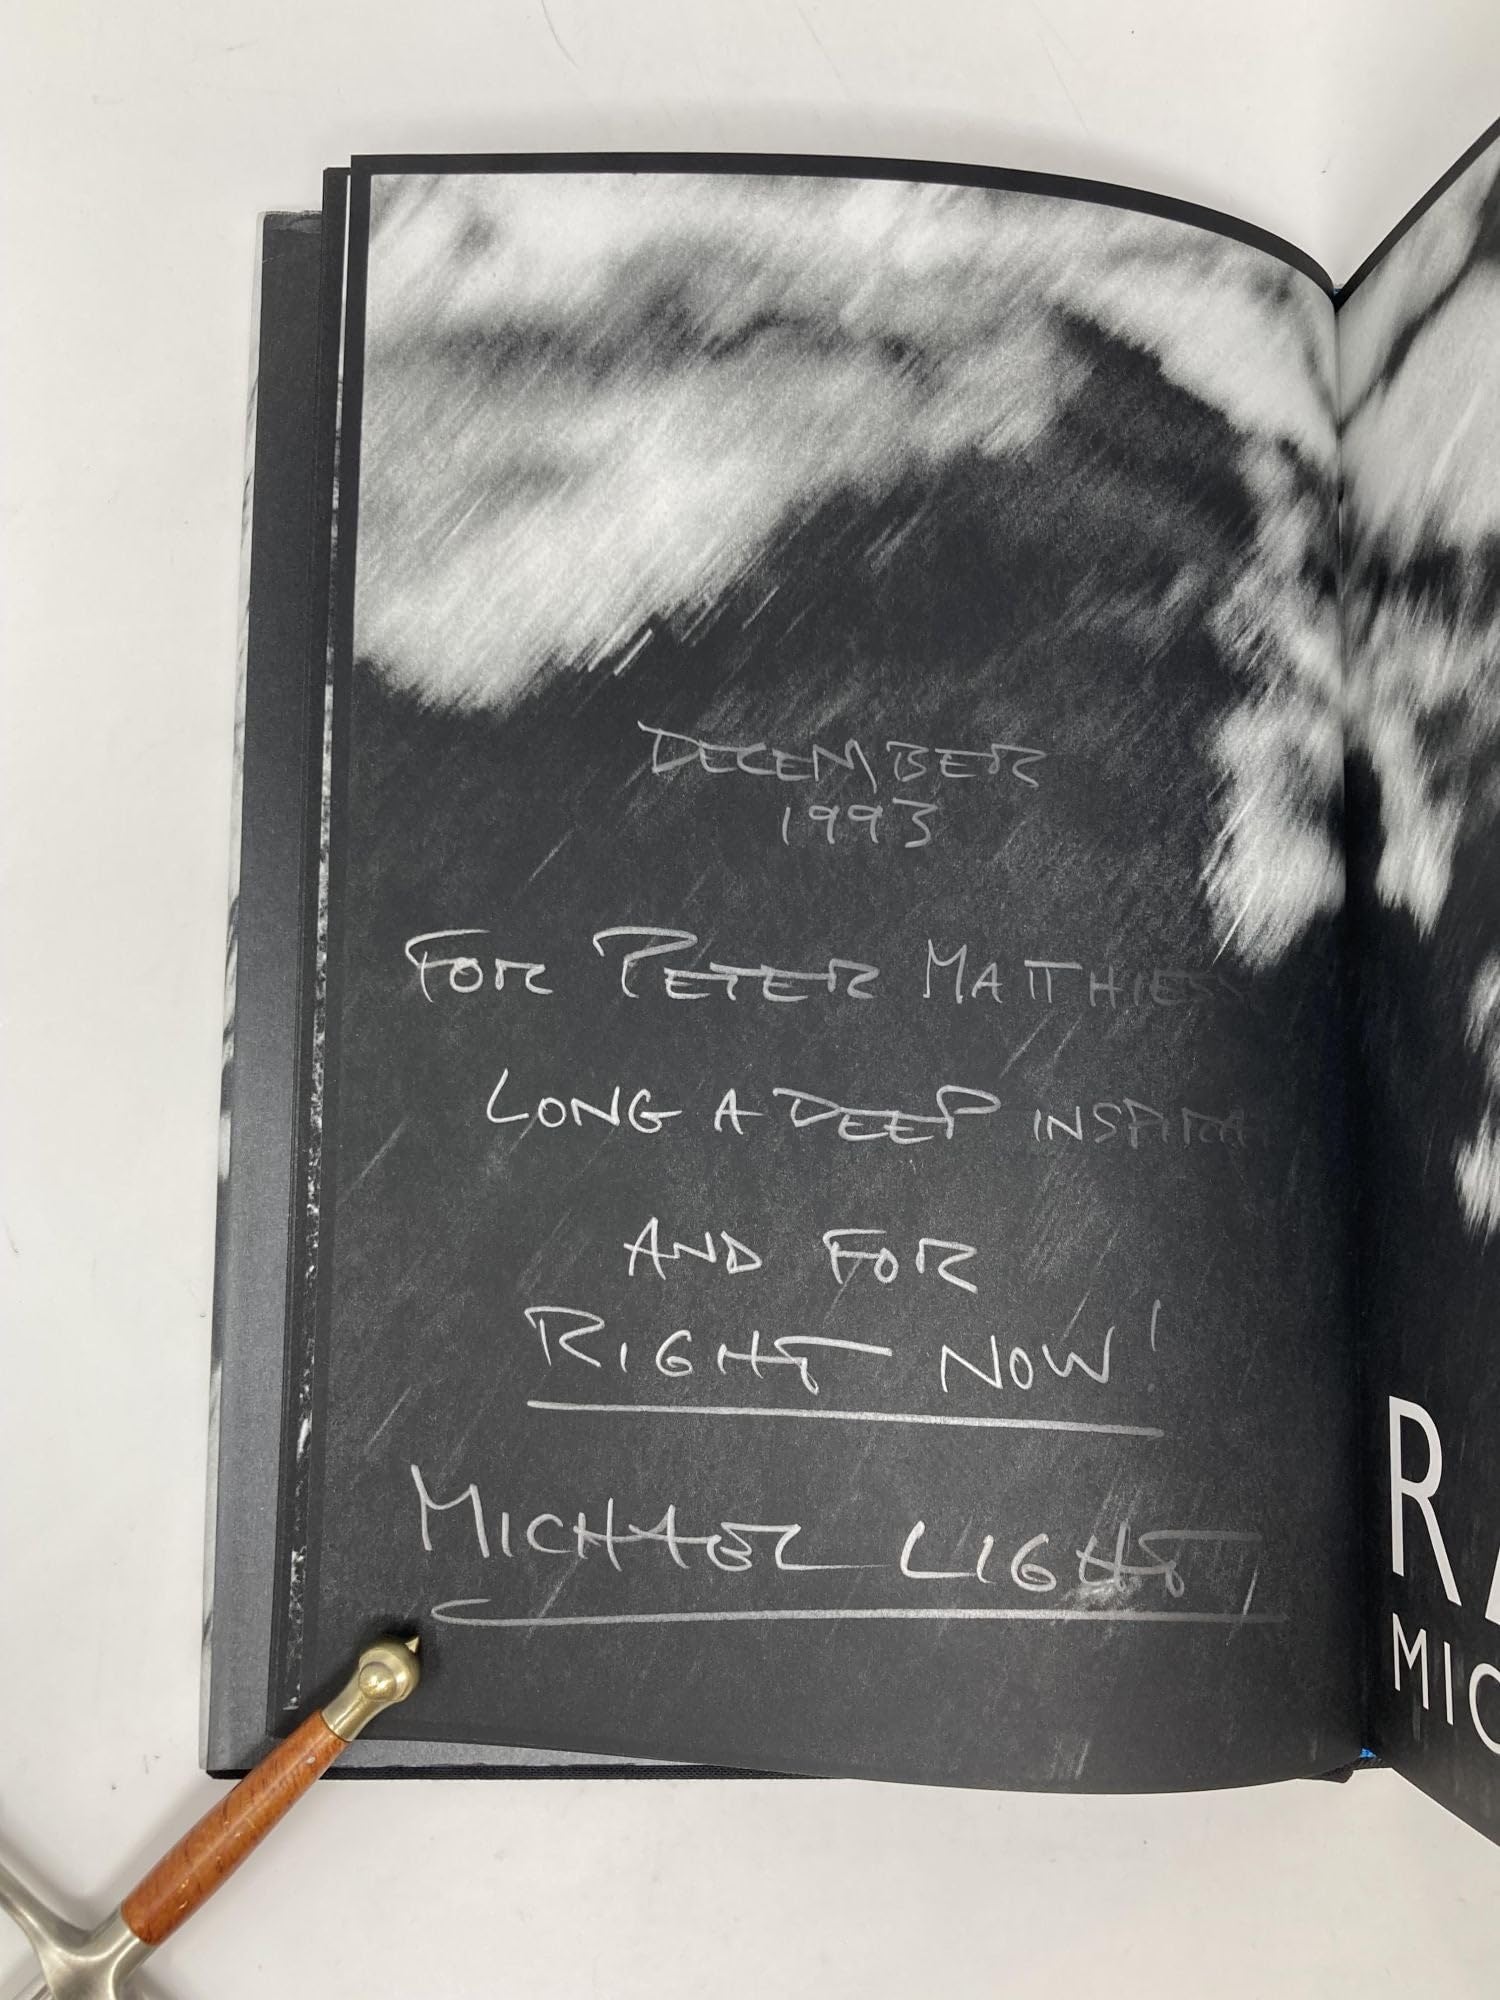 DECEMBER
1993
FOR PETER MATTHIESS
LONG A DEEP INSPIRA
AND FOR
RIGHT NOW!
MICHAEL LIGHT
RA
MIC